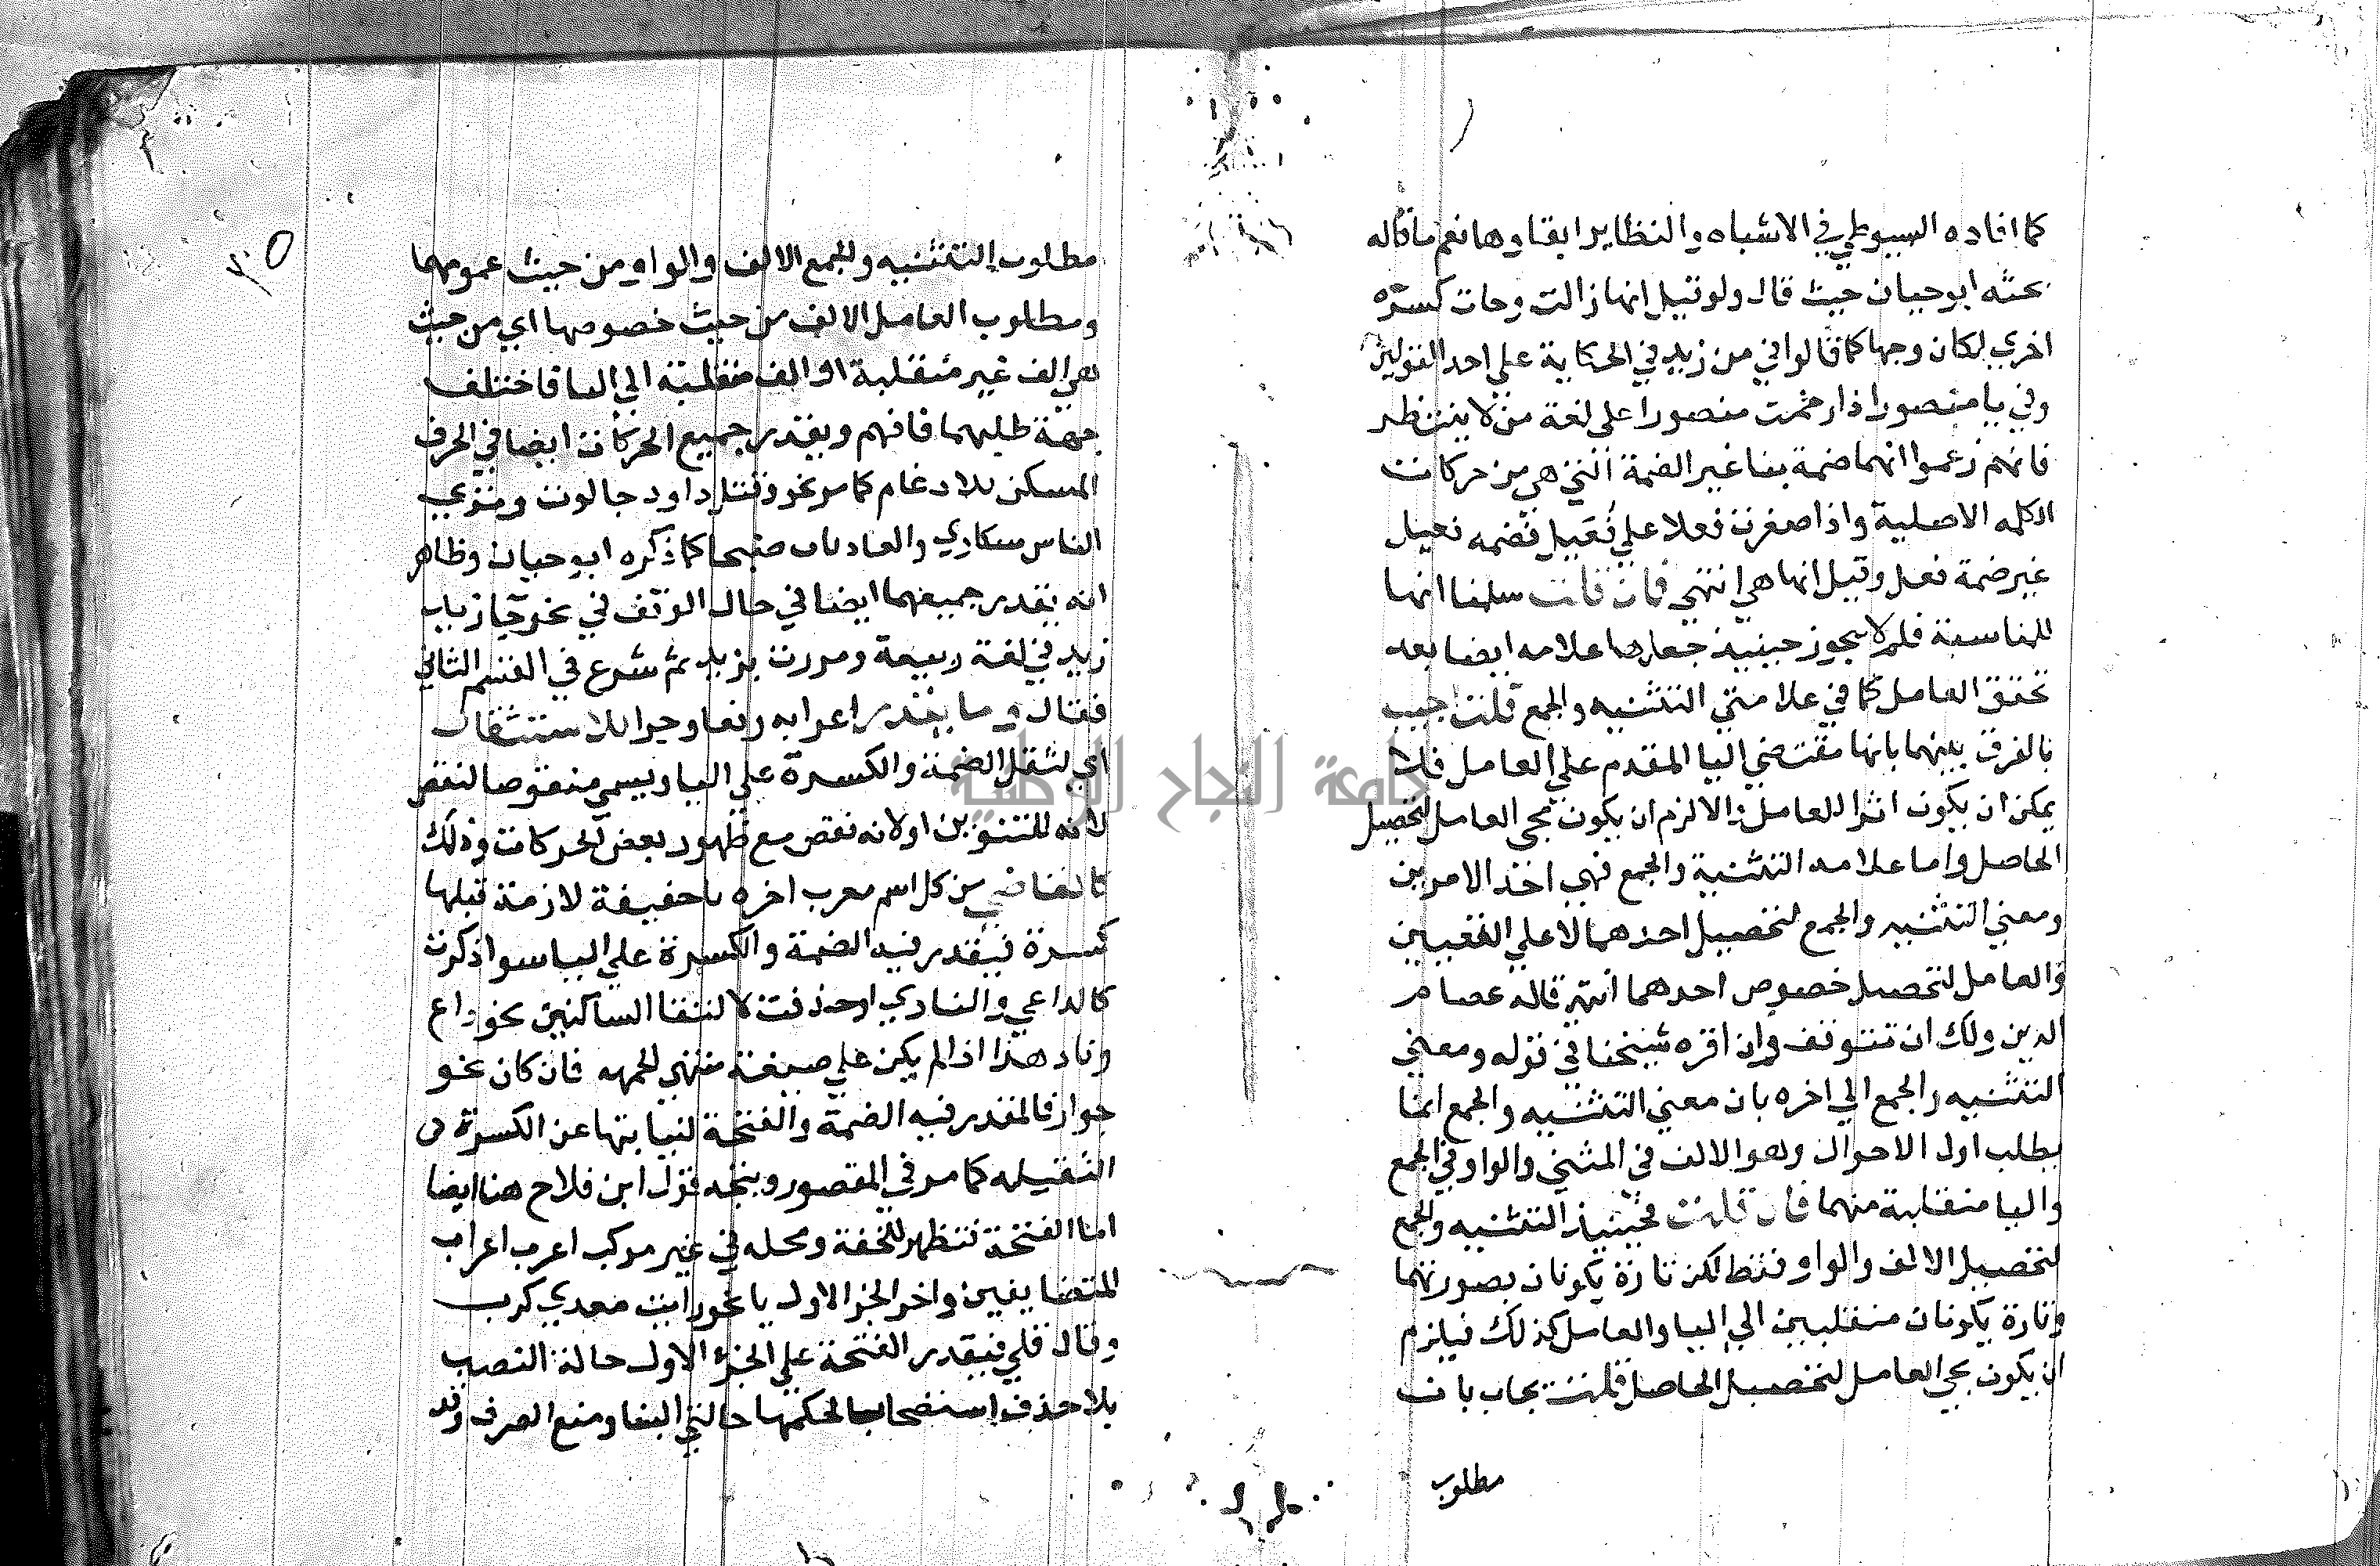 كما افاده السيوطي في الاشباه والنظاير ابقاوها نعم ما قاله
بحثه ابو حيان حيث قال ولو قيل انها زالت وجات كسرة
اخري لكان وجها كما قالوا في من زيد في الحكاية علي احد القولين
وفي يا منصور اذا رخمت منصورا علي لغة من لا ينتظر
فانهم زعموا انها ضمة بنا غير الضمة التي هي من حركات
الكلمه الاصلية واذا صغرت فعلا علي فعيل فضمه فعيل
غير ضمة فعل وقيل انها هي انتهي فان قلت سلمنا انها
للمناسبة فلم لا يجوز حينيذ جعلها علامه ايضا بعد
تحقق العامل كما في علامتي التثنيه والجمع قلت اجيب
بالفرق بينهما بانها مقتضي اليا المقدم علي العامل فلا
يمكن ان يكون اثرا للعامل والا لزم ان يكون مجي العامل لتحصيل
الحاصل واما علامه التثنية والجمع فهي احد الامرين
ومعني التثنيه والجمع لتحصيل احدهما لا علي التعيين
والعامل لتحصيل خصوص احدهما انتهي قاله عصام
الدين ولك ان تتوقف وان اقره شيخنا في قوله ومعني
التثنيه والجمع الي اخره بان معني التثنيه والجمع انما
يطلب اول الاحوال وهو الالف في المثني والواو في الجمع
واليا منقلبة منهما فان قلت فحينيذ التثنيه والجمع
لتحصيل الالف والواو فقط لكن تارة يكونان بصورتهما
وتارة يكونان منقلبين الي اليا والعامل كذلك فيلزم
ان يكون مجي العامل لتحصيل الحاصل قلت يجاب بان
مطلوب
٢٠٥
مطلوب التثنيه والجمع الالف والواو من حيث عمومهما
ومطلوب العامل الالف من حيث خصوصها اي من حيث
هي الف غير منقلبة او الف منقلبة الي اليا فاختلف
جهة طلبهما فافهم ويقدر جميع الحركات ايضا في الحرف
المسكن للادغام كما مر نحو وقتل داود جالوت وتري
الناس سكاري والعاديات ضبحا كما ذكره ابو حيان وظاهر
انه يقدر جميعها ايضا في حال الوقف في نحو جا زيد
زيد في لغة ربيعة ومررت بزيد ثم شرع في القسم الثاني
فقال وما يقدر اعرابه رفعا وجرا للاستثقال
اي لثقل الضمة والكسرة علي اليا ويسمي منقوصا لنقص
لامه للتنوين او لانه نقص مع ظهور بعض الحركات وذلك
كالقاضي من كل اسم معرب اخره يا خفيفة لازمة قبلها
كسرة فيقدر فيه الضمة والكسرة علي اليا سوا ذكرت
كالداعي والنادي او حذفت لالتقا الساكنين نحو داع
وناد هذا اذا لم يكن علي صيغة منتهي الجمهه فان كان نحو
جوار فالمقدر فيه الضمة والفتحة لنيابتها عن الكسرة في
الثقيله كما مر في المقصور ويتجه قول ابن فلاح هنا ايضا
اما الفتحة فتظهر للخفة ومحله في غير مركب اعرب اعراب
المتضايفين واخر الجز الاول يا نحو رايت معدي كرب
وقال قلي فيقدر الفتحة علي الجز الاول حالة النصب
بلا حذف استصحابا لحكمها حالتي البنا ومنع الصرف وقد
جامعة النجاح الوطنية